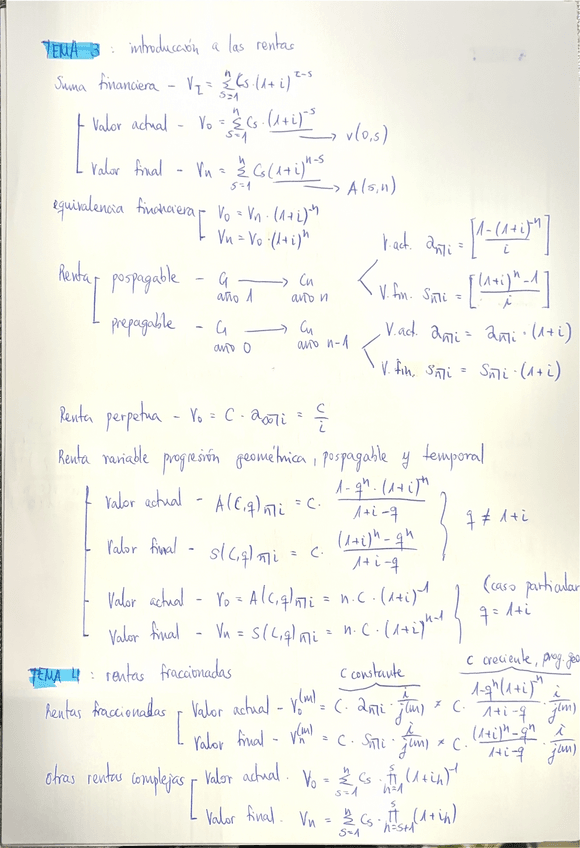 TEMA 3 : introducción a las rentas
Suma financiera - V_τ = Σ_{s=1}^{n} Cs·(1+i)^{τ-s}
Valor actual - V₀ = Σ_{s=1}^{n} Cs·(1+i)^{-s} → v(0,s)
Valor final - Vn = Σ_{s=1}^{n} Cs(1+i)^{n-s} → A(s,n)
equivalencia financiera V₀ = Vn·(1+i)^{-n}
Vn = V₀·(1+i)^{n}
Renta pospagable - C₁ → Cn
año 1 año n
V.act. a_{n̅|i} = [(1-(1+i)^{-n})/i]
V.fin. s_{n̅|i} = [((1+i)^{n}-1)/i]
prepagable - C₁ → Cn
año 0 año n-1
V.act. ä_{n̅|i} = a_{n̅|i}·(1+i)
V.fin. s̈_{n̅|i} = s_{n̅|i}·(1+i)
Renta perpetua - V₀ = C·a_{∞̅|i} = C/i
Renta variable progresión geométrica, pospagable y temporal
Valor actual - A(C,q)_{n̅|i} = C· (1-qⁿ·(1+i)^{-n})/(1+i-q)
Valor final - S(C,q)_{n̅|i} = C· ((1+i)^{n}-qⁿ)/(1+i-q)
q ≠ 1+i
Valor actual - V₀ = A(C,q)_{n̅|i} = n·C·(1+i)^{-1}
Valor final - Vn = S(C,q)_{n̅|i} = n·C·(1+i)^{n-1}
(caso particular
q = 1+i
TEMA 4 : rentas fraccionadas
C constante
C creciente, prog.geo
Rentas fraccionadas Valor actual - V₀^{(m)} = C·a_{n̅|i}·i/j(m) * C· (1-qⁿ(1+i)^{-n})/(1+i-q) · i/j(m)
Valor final - Vn^{(m)} = C·s_{n̅|i}·i/j(m) * C· ((1+i)^{n}-qⁿ)/(1+i-q) · i/j(m)
otras rentas complejas Valor actual. V₀ = Σ_{s=1}^{n} Cs·∏_{h=1}^{s}(1+ih)^{-1}
Valor final. Vn = Σ_{s=1}^{n} Cs·∏_{h=s+1}^{s}(1+ih)